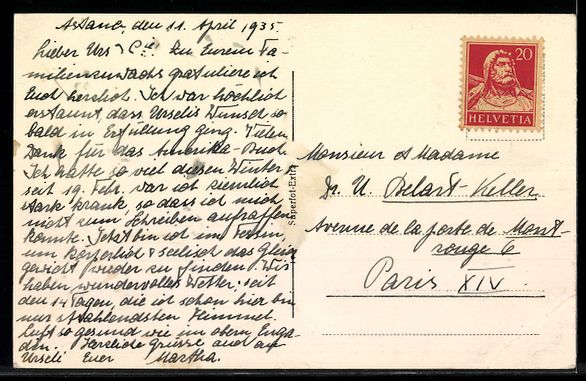 Ascona, den 11. April 1935.
Lieber Urs & Cie! Zu Eurem Fa-
milienzuwachs gratuliere ich
Euch herzlich. Ich war höchlich
erstaunt, dass Urselis Wunsch so
bald in Erfüllung ging. Vielen
Dank für das Amerika-Buch.
Ich hatte so viel diesen Winter
seit 19. Febr. war ich ziemlich
stark krank, so dass ich mich
nicht zum Schreiben aufraffen
konnte. Jetzt bin ich im Tessin,
um körperlich & seelisch das Gleich
gewicht wieder zu finden. Wir
haben wundervolles Wetter; seit
den 14 Tagen, die ich schon hier bin
nur strahlendsten Himmel.
Luft so gesund wie im obern Enga-
din. Herzliche Grüsse auch an
Urseli Euer Martha.
Superfot-Extra
20
HELVETIA
Monsieur et Madame
Dr. U. Belart-Keller
Avenue de la porte de Mont-
rouge 6
Paris XIV.